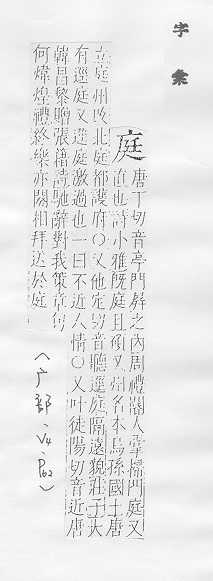 字彙
庭 唐丁切音亭門屏之內周禮閽人掌掃門庭又
直也詩小雅既庭且碩又州名本烏孫國土唐
立庭州改北庭都護府○又他定切音聽逕庭隔遠貌莊子大
有逕庭又逕庭激過也一曰不近人情○又叶徒陽切音近唐
韓昌黎贈張籍詩馳辭對我策章句
何煒煌禮終樂亦闋相拜送於庭
(广部、